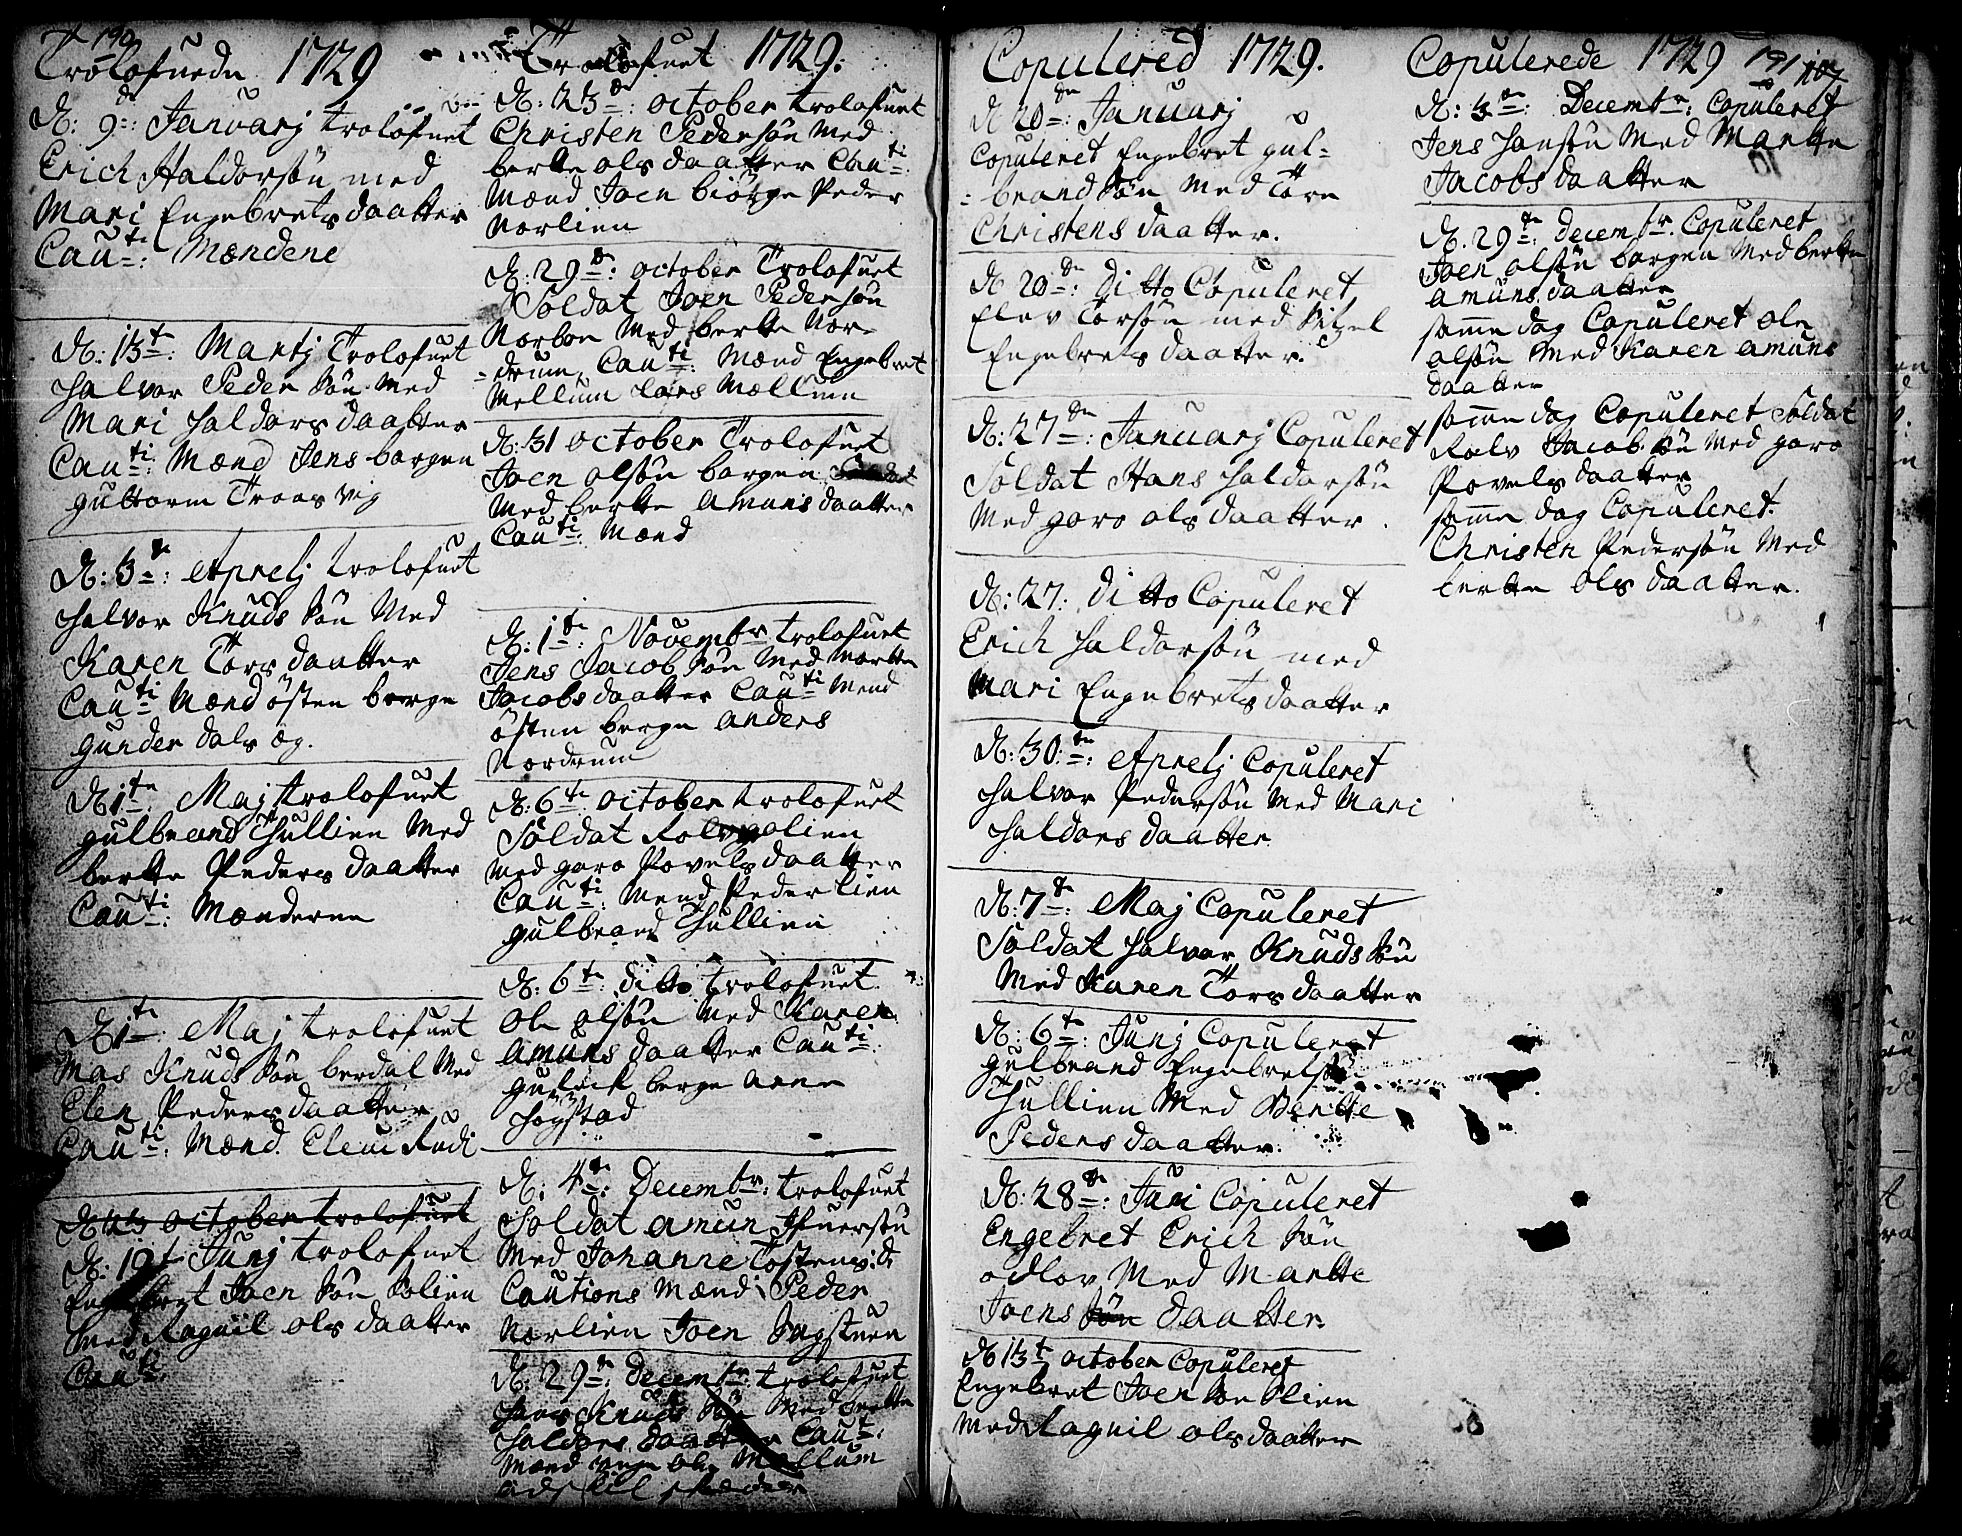 190
Trolofuede 1729
D: 9de: Januarj trolofuet
Erich Haldorsøn med
Mari Engebrets daatter
Cauti: Mændene
D: 13te: Martj Trolofuet
Halvor Peder søn Med
Mari Haldors daatter
Cauti: Mænd Jens borgen
guttorm Traasvig
D: 3de: Aprelj trolofuet
Halvor Knuds søn Med
Karen Tors daatter
Cauti Mænd østen berge
gunder dals æg.
D 1te: Maj trolofuet
gulbrand Thullien Med
berthe Peders daatter
Cauti: Mænderne
D 1te: Maj trolofuet
Mas Knuds søn berdal Med
Elen Peders daatter
Cauti: Mænd. Eleni Rudi
D 23 october trolofuet
D: 19t Junj trolofuet
Engebret Joen søn Kolien
Med Raguil ols daatter
Cauti
Trolofuet 1729:
D: 23de: october trolofuet
Christen Pedersøn Med
berte ols daatter Cauti:
Mænd Joen biørge Peder
Norlien
D: 29de: october Trolofuet
Soldat Joen Pedersøn
Norbon Med berte Nor-
-drum, Cauti: Mænd Engebret
Mellum Lars Mællum
D: 31 october Trolofuet
Joen olsøn borgen
Med berte Amuns daatter
Cauti: Mænd
D: 1te: Novembr trolofuet
Jens Jacob søn Med Marte
Jacobs daatter Cauti Mend
østen berge anders
Nordrum
D: 6te: october trolofuet
Soldat Rolv olien
Med goro Povels daatter
Cauti: Mend Peder Lien
gulbrand Thullien
D: 6te: ditto trolofuet
Ole olsøn Med Karen
Amuns daatter Cauti:
gulick berge arne
Høgstad
D: 4te: Decembr: trolofuet
Soldat amun Ifuersøn
Med Johanne Tostensd:
Cautions Mænd: Peder
Norlien Joen Bagstuen
D: 29de: Decembr: trolofuet
Hans Knuds søn Med berte
Haldors daatter Caut:
Mænd ole Mællum
Copulered 1729.
D 20de: Januarj
Copuleret Engebret gul-
-brand søn Med Tore
Christens daatter.
D 20de: Ditto Copuleret
Elev Torsøn med Sitzel
Engebrets daatter.
D: 27de: Januarj Copuleret
Soldat Hans Haldorsøn
Med goro ols daatter.
D: 27: Ditto Copuleret
Erich Haldorsøn med
Mari Engebrets daatter
D: 30te: Aprelj Copuleret
Halvor Pedersøn Med Mari
Haldors daatter
D: 7de: Maj Copuleret
Soldat Halvor Knuds søn
Med Karen Tors daatter
D: 6te: Junj Copuleret
gulbrand Engebretsøn
Thullien Med Berthe
Peders daatter.
D: 28de: Juni Copuleret
Engebret Erich søn
odlov Med Marthe
Joens søn daatter.
D 13t october Copuleret
Engebret Joen søn Olien
Med Raguil ols daatter
Copulerede 1729 191
107
D: 3de: Decembr: Copuleret
Jens Hansøn Med Marte
Jacobs daatter
D. 29te: Decembr. Copuleret
Joen olsøn borgen Med berte
amuns daatter
samme dag Copuleret ole
olsøn Med Karen amuns
daatter
samme dag Copuleret Soldat
Rolv Jacob søn Med goro
Povels daatter
samme dag Copuleret.
Christen Pedersøn Med
berte ols daatter.